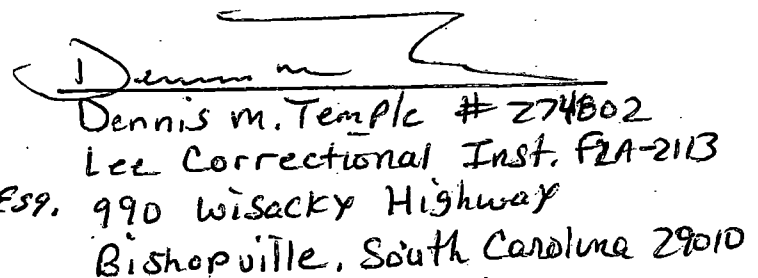 Dennis m
Dennis M. Temple # 274802
Lee Correctional Inst. F2A-2113
Esq. 990 Wisacky Highway
Bishopville, South Carolina 29010